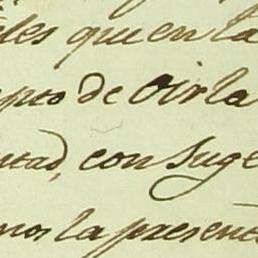 les que en la
pto de Oir la
ntad, con Suge
mos la presente